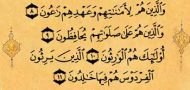 وَالَّذِينَ هُمْ لِأَمَانَاتِهِمْ وَعَهْدِهِمْ رَاعُونَ ٨
وَالَّذِينَ هُمْ عَلَىٰ صَلَوَاتِهِمْ يُحَافِظُونَ ٩
أُولَٰئِكَ هُمُ الْوَارِثُونَ ١٠ الَّذِينَ يَرِثُونَ
الْفِرْدَوْسَ هُمْ فِيهَا خَالِدُونَ ١١